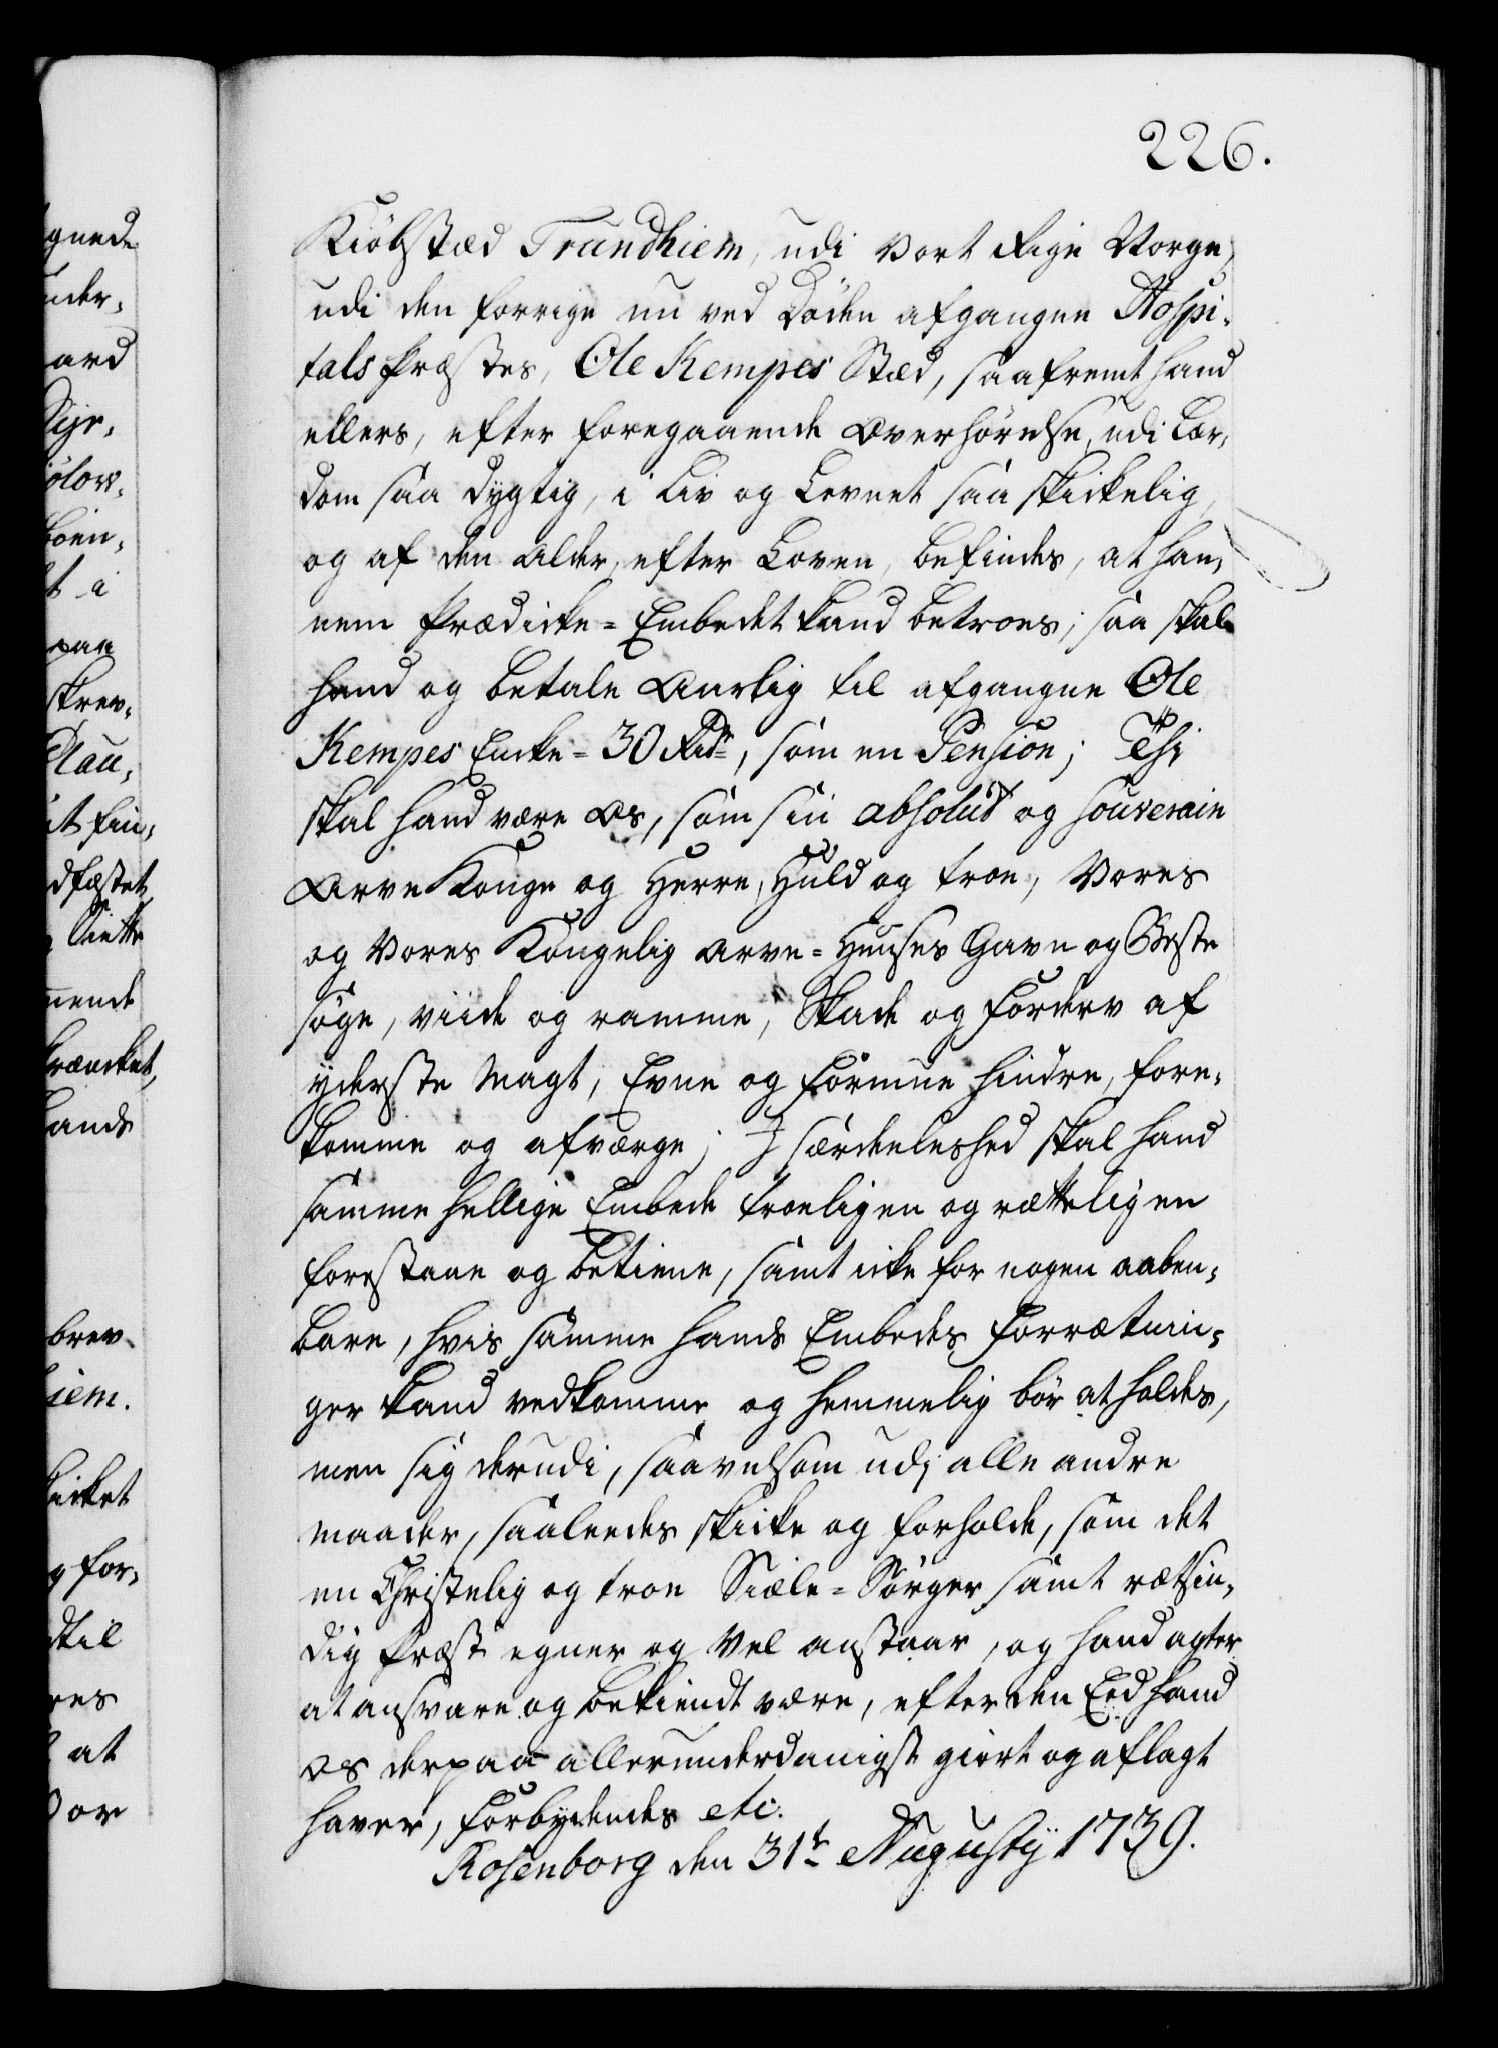 226.
Kiöbstæd Trundhiem, udi Vort Rige Norge,
udi den forrige nu ved Döden afgangne Hospi-
tals Præstes, Ole Kempes Stæd, saafremt hand
ellers, efter foregaaende Overhörelse, udi Lær-
dom saa dygtig, i Liv og Levnet saa skickelig,
og af den Alder, efter Loven, befindes, at han-
nem Prædicke-Embedet kand betroes; saa skal
hand og betale Aarlig til afgangne Ole
Kempes Encke-30 Rdr, som en Pension; Thi
skal hand være Os, som sin absolut og souverain
Arve Konge og Herre, Huld og troe, Vores
og Vores Kongelig Arve-Huuses Gavn og Beste
söge, viide og ramme, Skade og Forderv af
yderste Magt, Evne og Formue hindre, fore-
komme og afværge; J særdeeleshed skal hand
samme hellige Embede troeligen og rætteligen
forestaae og betiene, samt icke for nogen aaben-
bare, hvis samme hands Embedes Forrætnin-
ger kand vedkomme og hemmelig bör at holdes,
men sig derudi, saavelsom udj alle andre
maader, saaleedes skicke og forholde, som det
en Christelig og troe Siæle-Sörger samt rætsin-
dig Præst egner og vel anstaar, og hand agter
at ansvare og bekiendt være, efter den Eed hand
Os derpaa allerunderdanigst giort og aflagt
haver, Forbydendes etc.
Rosenborg den 31te Augustij 1739.